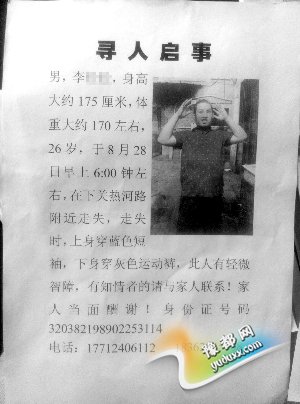 寻人启事
男，李 ，身高
大约175厘米，体
重大约170左右，
26岁，于8月28
日早上6:00钟左
右，在下关热河路
附近走失，走失
时，上身穿蓝色短
袖，下身穿灰色运动裤，此人有轻微
智障，有知情者的请与家人联系！家
人当面酬谢！身份证号码
320382198902253114
电话：17712406112
豫都网
yuduxx.com